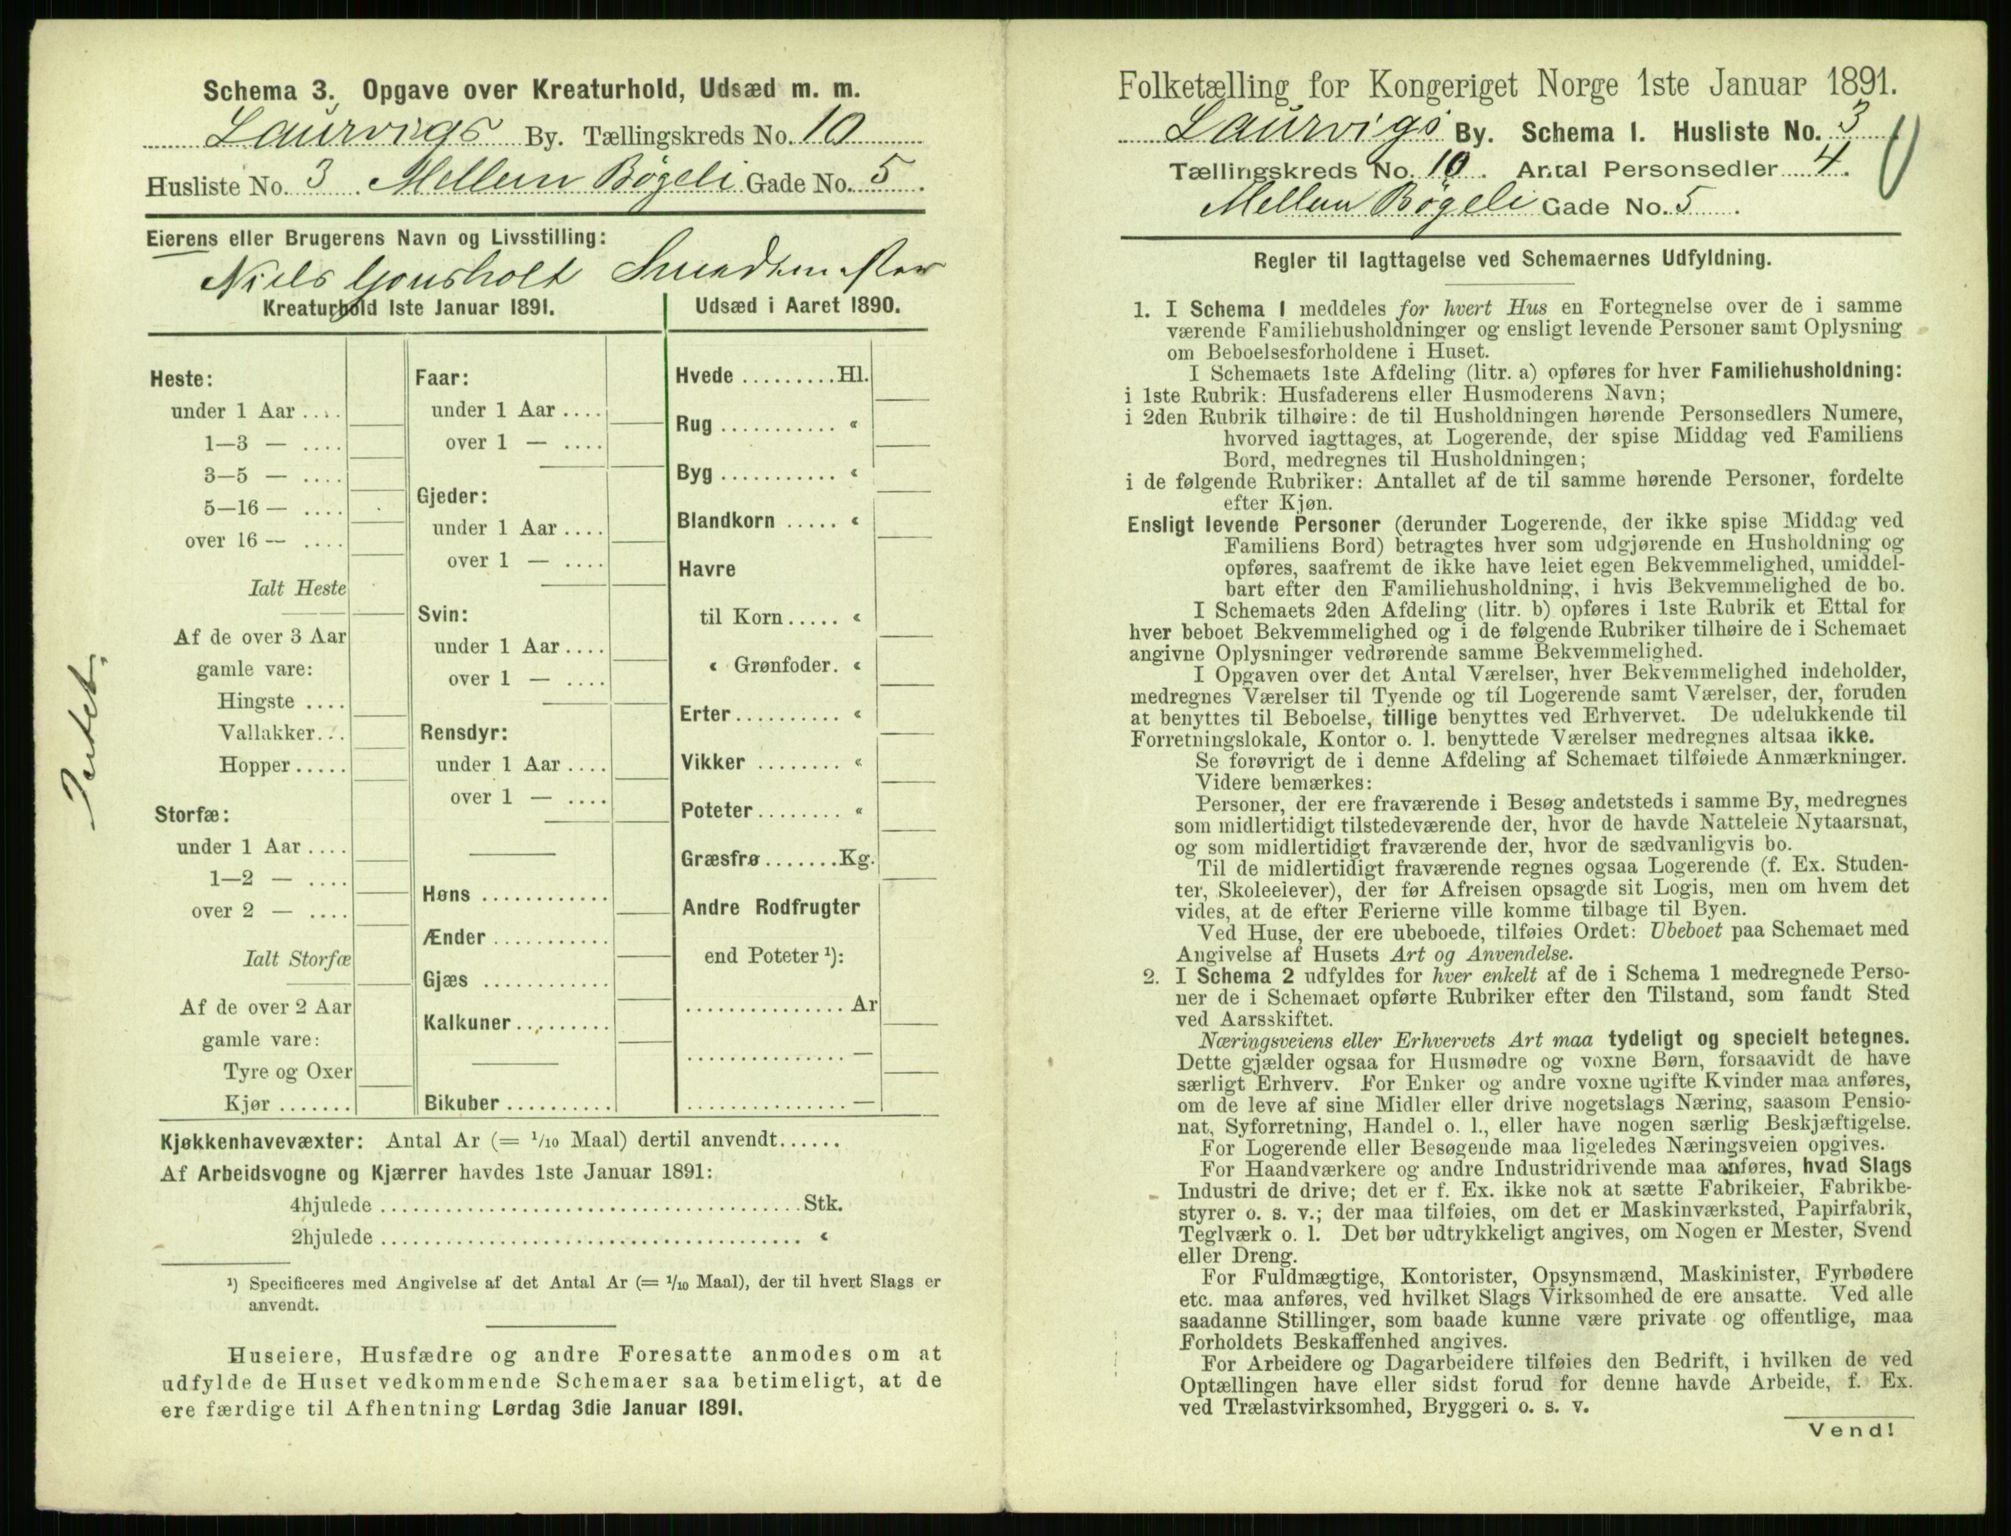 Schema 3. Opgave over Kreaturhold, Udsæd m. m.
Laurvigs By. Tællingskreds No. 10
Husliste No. 3. Mellem Bøgeli Gade No. 5.
Eierens eller Brugerens Navn og Livsstilling:
Niels Gonsholt Smedmester
Kreaturhold 1ste Januar 1891.
Heste:
under 1 Aar ....
1—3 — ....
3—5 — ....
5—16 — ....
over 16 — ....
Ialt Heste
Af de over 3 Aar
gamle vare:
Hingste ....
Vallakker...
Hopper.....
Storfæ:
under 1 Aar ....
1—2 — ....
over 2 — ....
Ialt Storfæ
Af de over 2 Aar
gamle vare:
Tyre og Oxer
Kjør .......
Faar:
under 1 Aar ....
over 1 — ....
Gjeder:
under 1 Aar ....
over 1 — ....
Svin:
under 1 Aar ....
over 1 — ....
Rensdyr:
under 1 Aar ....
over 1 — ....
Høns ............
Ænder ...........
Gjæs ............
Kalkuner.........
Bikuber ..........
Udsæd i Aaret 1890.
Hvede .........Hl.
Rug ........... «
Byg ........... «
Blandkorn ..... «
Havre
til Korn ..... «
« Grønfoder. «
Erter.......... «
Vikker ........ «
Poteter........ «
Græsfrø .......Kg.
Andre Rodfrugter
end Poteter ¹):
............... Ar
............... —
............... —
Kjøkkenhavevæxter: Antal Ar (= 1/10 Maal) dertil anvendt......
Af Arbeidsvogne og Kjærrer havdes 1ste Januar 1891:
4hjulede ........................................Stk.
2hjulede ........................................ «
¹) Specificeres med Angivelse af det Antal Ar (= 1/10 Maal), der til hvert Slags er
anvendt.
Huseiere, Husfædre og andre Foresatte anmodes om at
udfylde de Huset vedkommende Schemaer saa betimeligt, at de
ere færdige til Afhentning Lørdag 3die Januar 1891.
Folketælling for Kongeriget Norge 1ste Januar 1891.
Laurvigs By. Schema 1. Husliste No. 3
Tællingskreds No. 10. Antal Personsedler 4.
Mellem Bøgeli Gade No. 5.
Regler til Iagttagelse ved Schemaernes Udfyldning.
1. I Schema 1 meddeles for hvert Hus en Fortegnelse over de i samme
værende Familiehusholdninger og ensligt levende Personer samt Oplysning
om Beboelsesforholdene i Huset.
I Schemaets 1ste Afdeling (litr. a) opføres for hver Familiehusholdning:
i 1ste Rubrik: Husfaderens eller Husmoderens Navn;
i 2den Rubrik tilhøire: de til Husholdningen hørende Personsedlers Numere,
hvorved iagttages, at Logerende, der spise Middag ved Familiens
Bord, medregnes til Husholdningen;
i de følgende Rubriker: Antallet af de til samme hørende Personer, fordelte
efter Kjøn.
Ensligt levende Personer (derunder Logerende, der ikke spise Middag ved
Familiens Bord) betragtes hver som udgjørende en Husholdning og
opføres, saafremt de ikke have leiet egen Bekvemmelighed, umiddel-
bart efter den Familiehusholdning, i hvis Bekvemmelighed de bo.
I Schemaets 2den Afdeling (litr. b) opføres i 1ste Rubrik et Ettal for
hver beboet Bekvemmelighed og i de følgende Rubriker tilhøire de i Schemaet
angivne Oplysninger vedrørende samme Bekvemmelighed.
I Opgaven over det Antal Værelser, hver Bekvemmelighed indeholder,
medregnes Værelser til Tyende og til Logerende samt Værelser, der, foruden
at benyttes til Beboelse, tillige benyttes ved Erhvervet. De udelukkende til
Forretningslokale, Kontor o. l. benyttede Værelser medregnes altsaa ikke.
Se forøvrigt de i denne Afdeling af Schemaet tilføiede Anmærkninger.
Videre bemærkes:
Personer, der ere fraværende i Besøg andetsteds i samme By, medregnes
som midlertidigt tilstedeværende der, hvor de havde Natteleie Nytaarsnat,
og som midlertidigt fraværende der, hvor de sædvanligvis bo.
Til de midlertidigt fraværende regnes ogsaa Logerende (f. Ex. Studen-
ter, Skoleelever), der før Afreisen opsagde sit Logis, men om hvem det
vides, at de efter Ferierne ville komme tilbage til Byen.
Ved Huse, der ere ubeboede, tilføies Ordet: Ubeboet paa Schemaet med
Angivelse af Husets Art og Anvendelse.
2. I Schema 2 udfyldes for hver enkelt af de i Schema 1 medregnede Perso-
ner de i Schemaet opførte Rubriker efter den Tilstand, som fandt Sted
ved Aarsskiftet.
Næringsveiens eller Erhvervets Art maa tydeligt og specielt betegnes.
Dette gjælder ogsaa for Husmødre og voxne Børn, forsaavidt de have
særligt Erhverv. For Enker og andre voxne ugifte Kvinder maa anføres,
om de leve af sine Midler eller drive nogetslags Næring, saasom Pensio-
nat, Syforretning, Handel o. l., eller have nogen særlig Beskjæftigelse.
For Logerende eller Besøgende maa ligeledes Næringsveien opgives.
For Haandværkere og andre Industridrivende maa anføres, hvad Slags
Industri de drive; det er f. Ex. ikke nok at sætte Fabrikeier, Fabrikbe-
styrer o. s. v.; der maa tilføies, om det er Maskinværksted, Papirfabrik,
Teglværk o. l. Det bør udtrykkeligt angives, om Nogen er Mester, Svend
eller Dreng.
For Fuldmægtige, Kontorister, Opsynsmænd, Maskinister, Fyrbødere
etc. maa anføres, ved hvilket Slags Virksomhed de ere ansatte. Ved alle
saadanne Stillinger, som baade kunne være private og offentlige, maa
Forholdets Beskaffenhed angives.
For Arbeidere og Dagarbeidere tilføies den Bedrift, i hvilken de ved
Optællingen have eller sidst forud for denne havde Arbeide, f. Ex.
ved Trælastvirksomhed, Bryggeri o. s. v.
Vend!